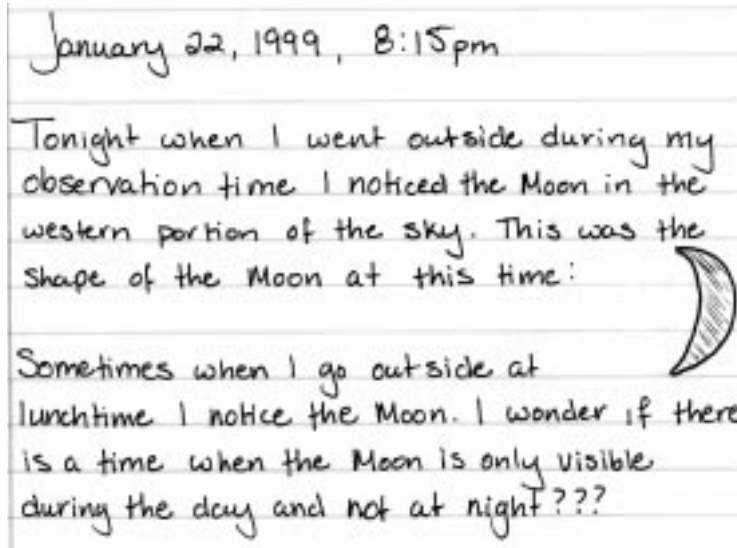 January 22, 1999, 8:15pm
Tonight when I went outside during my
observation time I noticed the Moon in the
western portion of the sky. This was the
shape of the Moon at this time:
Sometimes when I go outside at
lunchtime I notice the Moon. I wonder if there
is a time when the Moon is only visible
during the day and not at night???